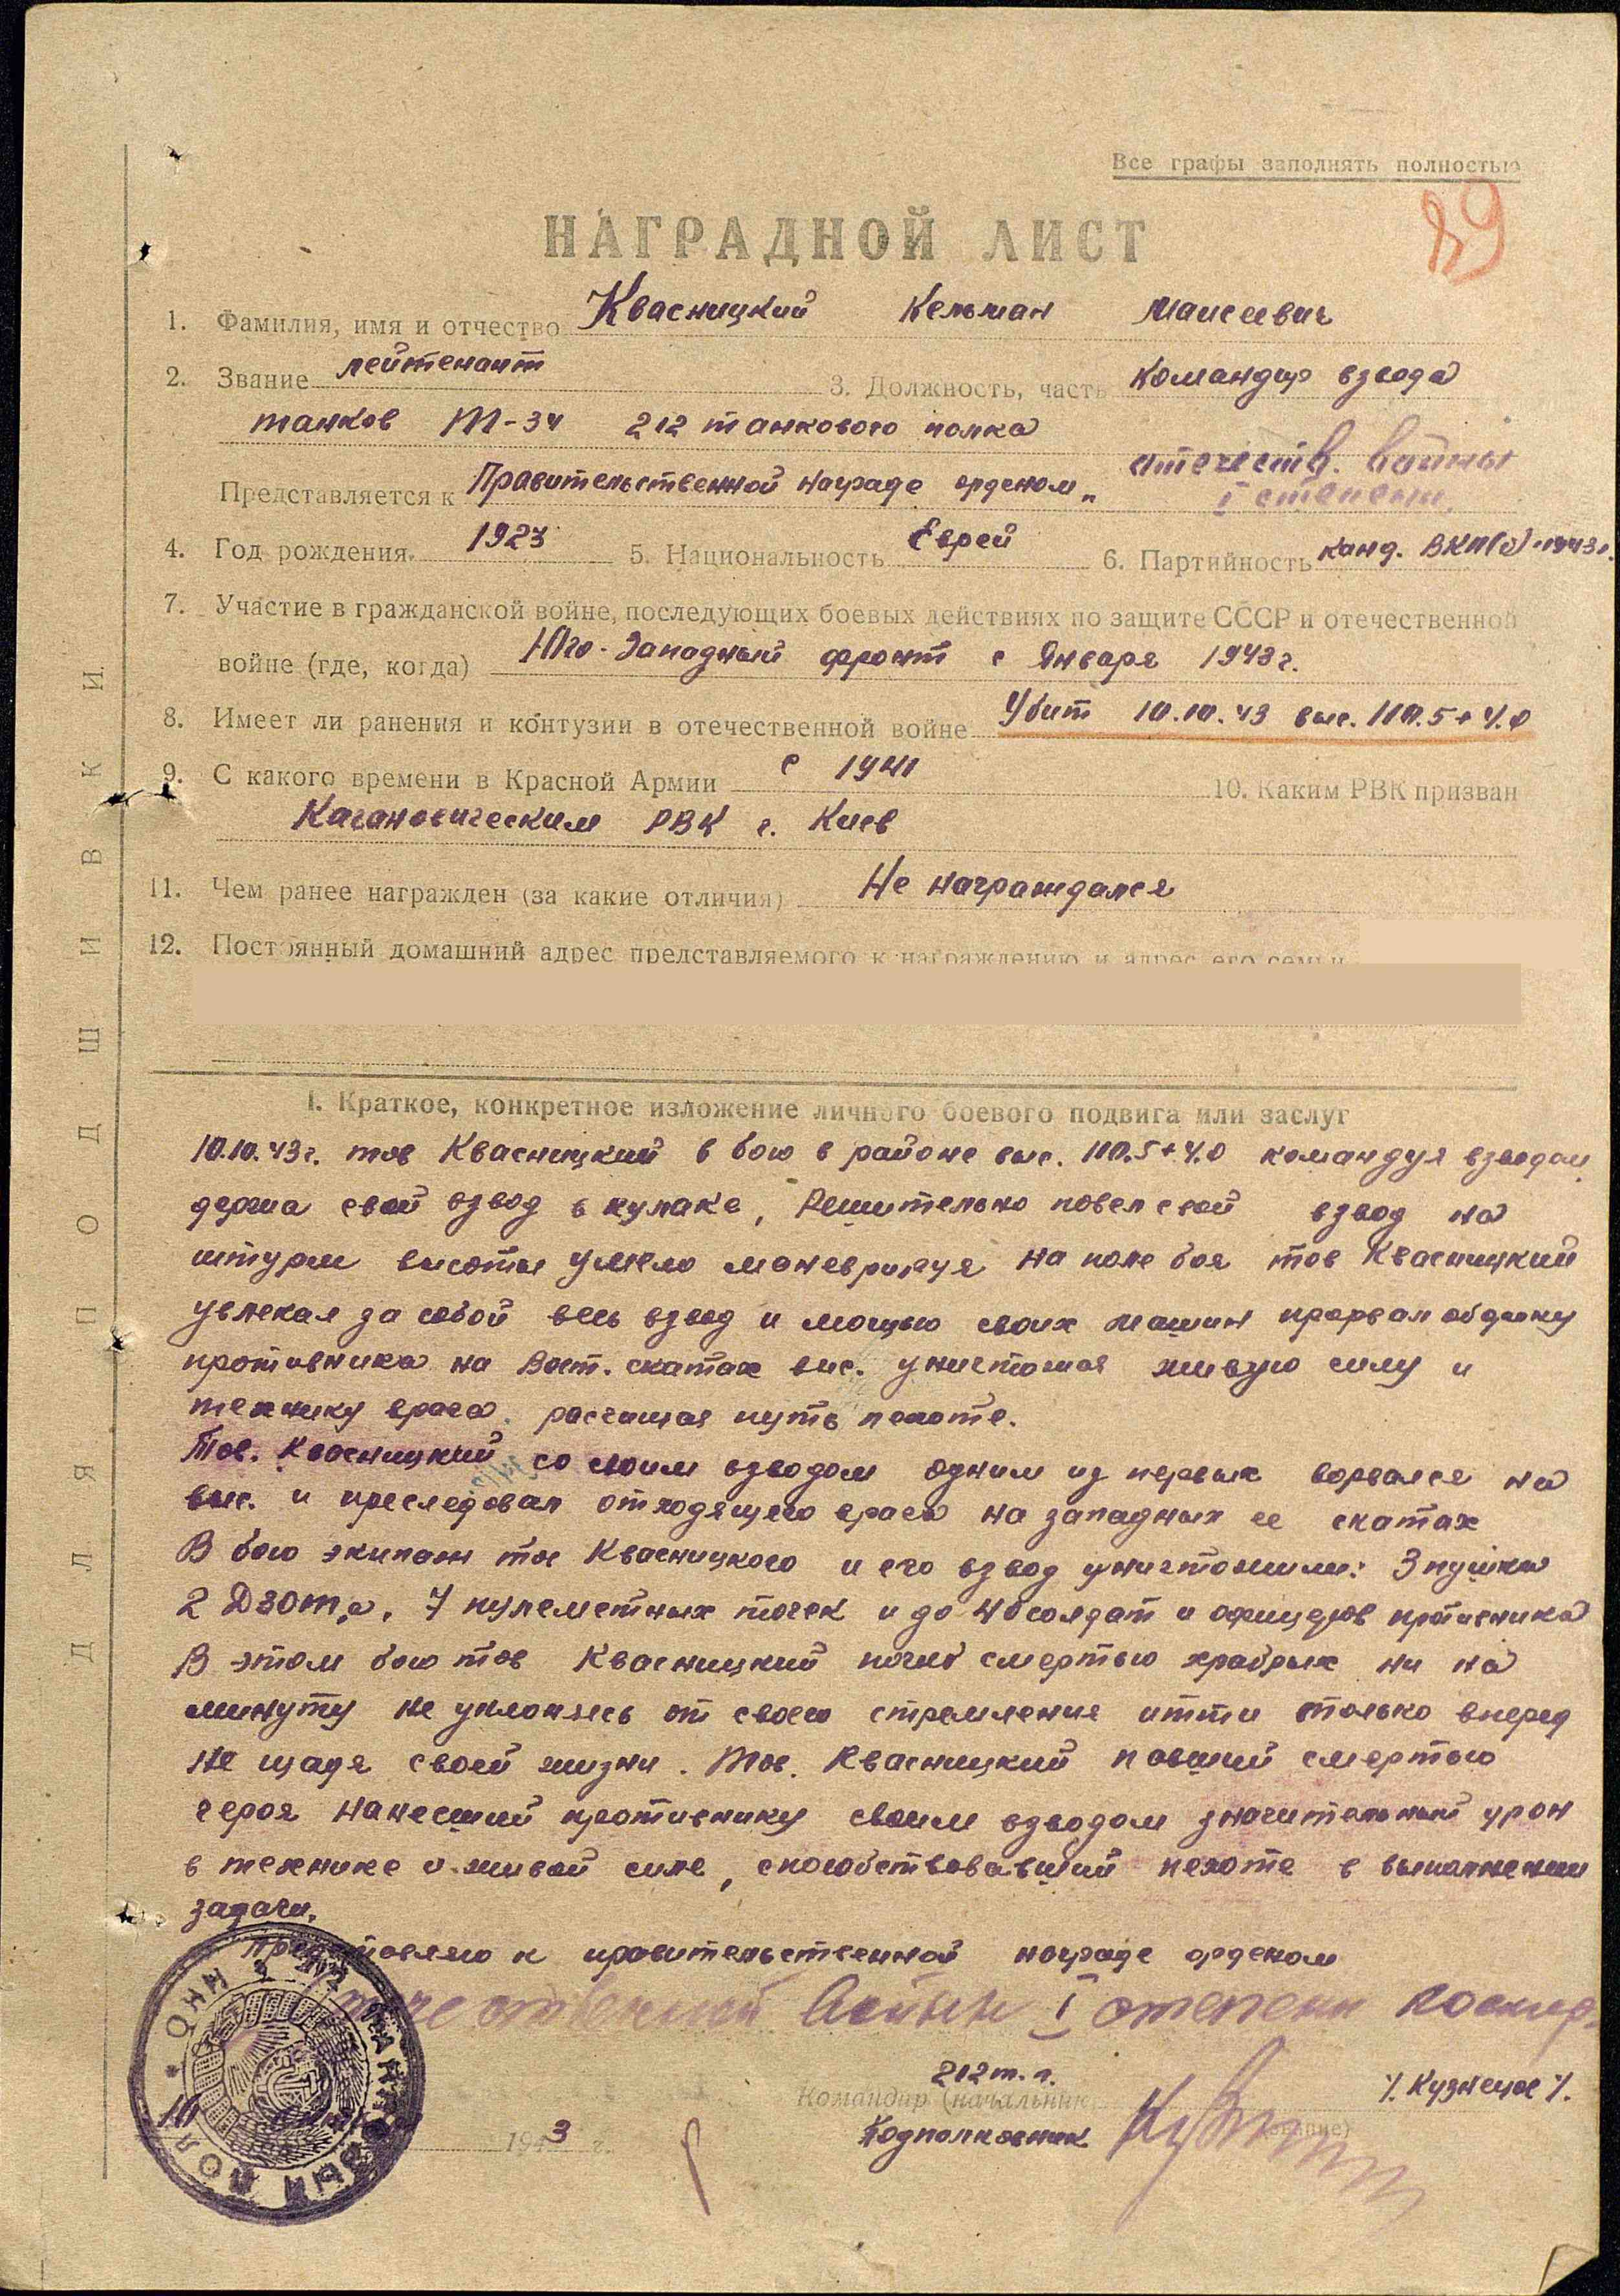 Все графы заполнять полностью
89
НАГРАДНОЙ ЛИСТ
1. Фамилия, имя и отчество Квасницкий Кельман Маисеевич
2. Звание лейтенант 3. Должность, часть командир взвода
танков Т-34 212 танкового полка
Представляется к Правительственной награде орденом „ отечеств. войны
I степени
4. Год рождения 1923 5. Национальность Еврей 6. Партийность канд. ВКП(б) 1943г.
7. Участие в гражданской войне, последующих боевых действиях по защите СССР и отечественной
войне (где, когда) Юго-Западный фронт с Января 1943г.
8. Имеет ли ранения и контузии в отечественной войне Убит 10.10.43 выс. 110.5+4.0
9. С какого времени в Красной Армии с 1941 10. Каким РВК призван
Кагановическим РВК г. Киев
11. Чем ранее награжден (за какие отличия) Не награждался
12. Постоянный домашний адрес представляемого к награждению и адрес его семьи
I. Краткое, конкретное изложение личного боевого подвига или заслуг
10.10.43г. тов Квасницкий в бою в районе выс. 110.5+4.0 командуя взводом
держа свой взвод в кулаке, Решительно повел свой взвод на
штурм высоты умело маневрируя на поле боя тов Квасницкий
увлекая за собой весь взвод и мощью своих машин прорвал оборону
противника на Вост. скатах выс. уничтожая живую силу и
технику врага, расчищая путь пехоте.
Тов. Квасницкий со своим взводом одним из первых ворвался на
выс. и преследовал отходящего врага на западных ее скатах
В бою экипаж тов Квасницкого и его взвод уничтожили: 3 пушки
2 Дзота, 7 пулеметных точек и до 40 солдат и офицеров противника
В этом бою тов Квасницкий погиб смертью храбрых ни на
минуту не уклоняясь от своего стремления итти только вперед
Не щадя своей жизни. Тов. Квасницкий павший смертью
героя нанесший противнику своим взводом значительный урон
в технике и живой силе, способствовавший пехоте в выполнении
задачи.
Представляю к правительственной награде орденом
Отечественной Войны I степени посмер.
212 т.п.
Командир (начальник
Подполковник /. Кузнецов /.
10 1943 г.
ДЛЯ ПОДШИВКИ
212 ТАНКОВЫЙ ПОЛК * НКО